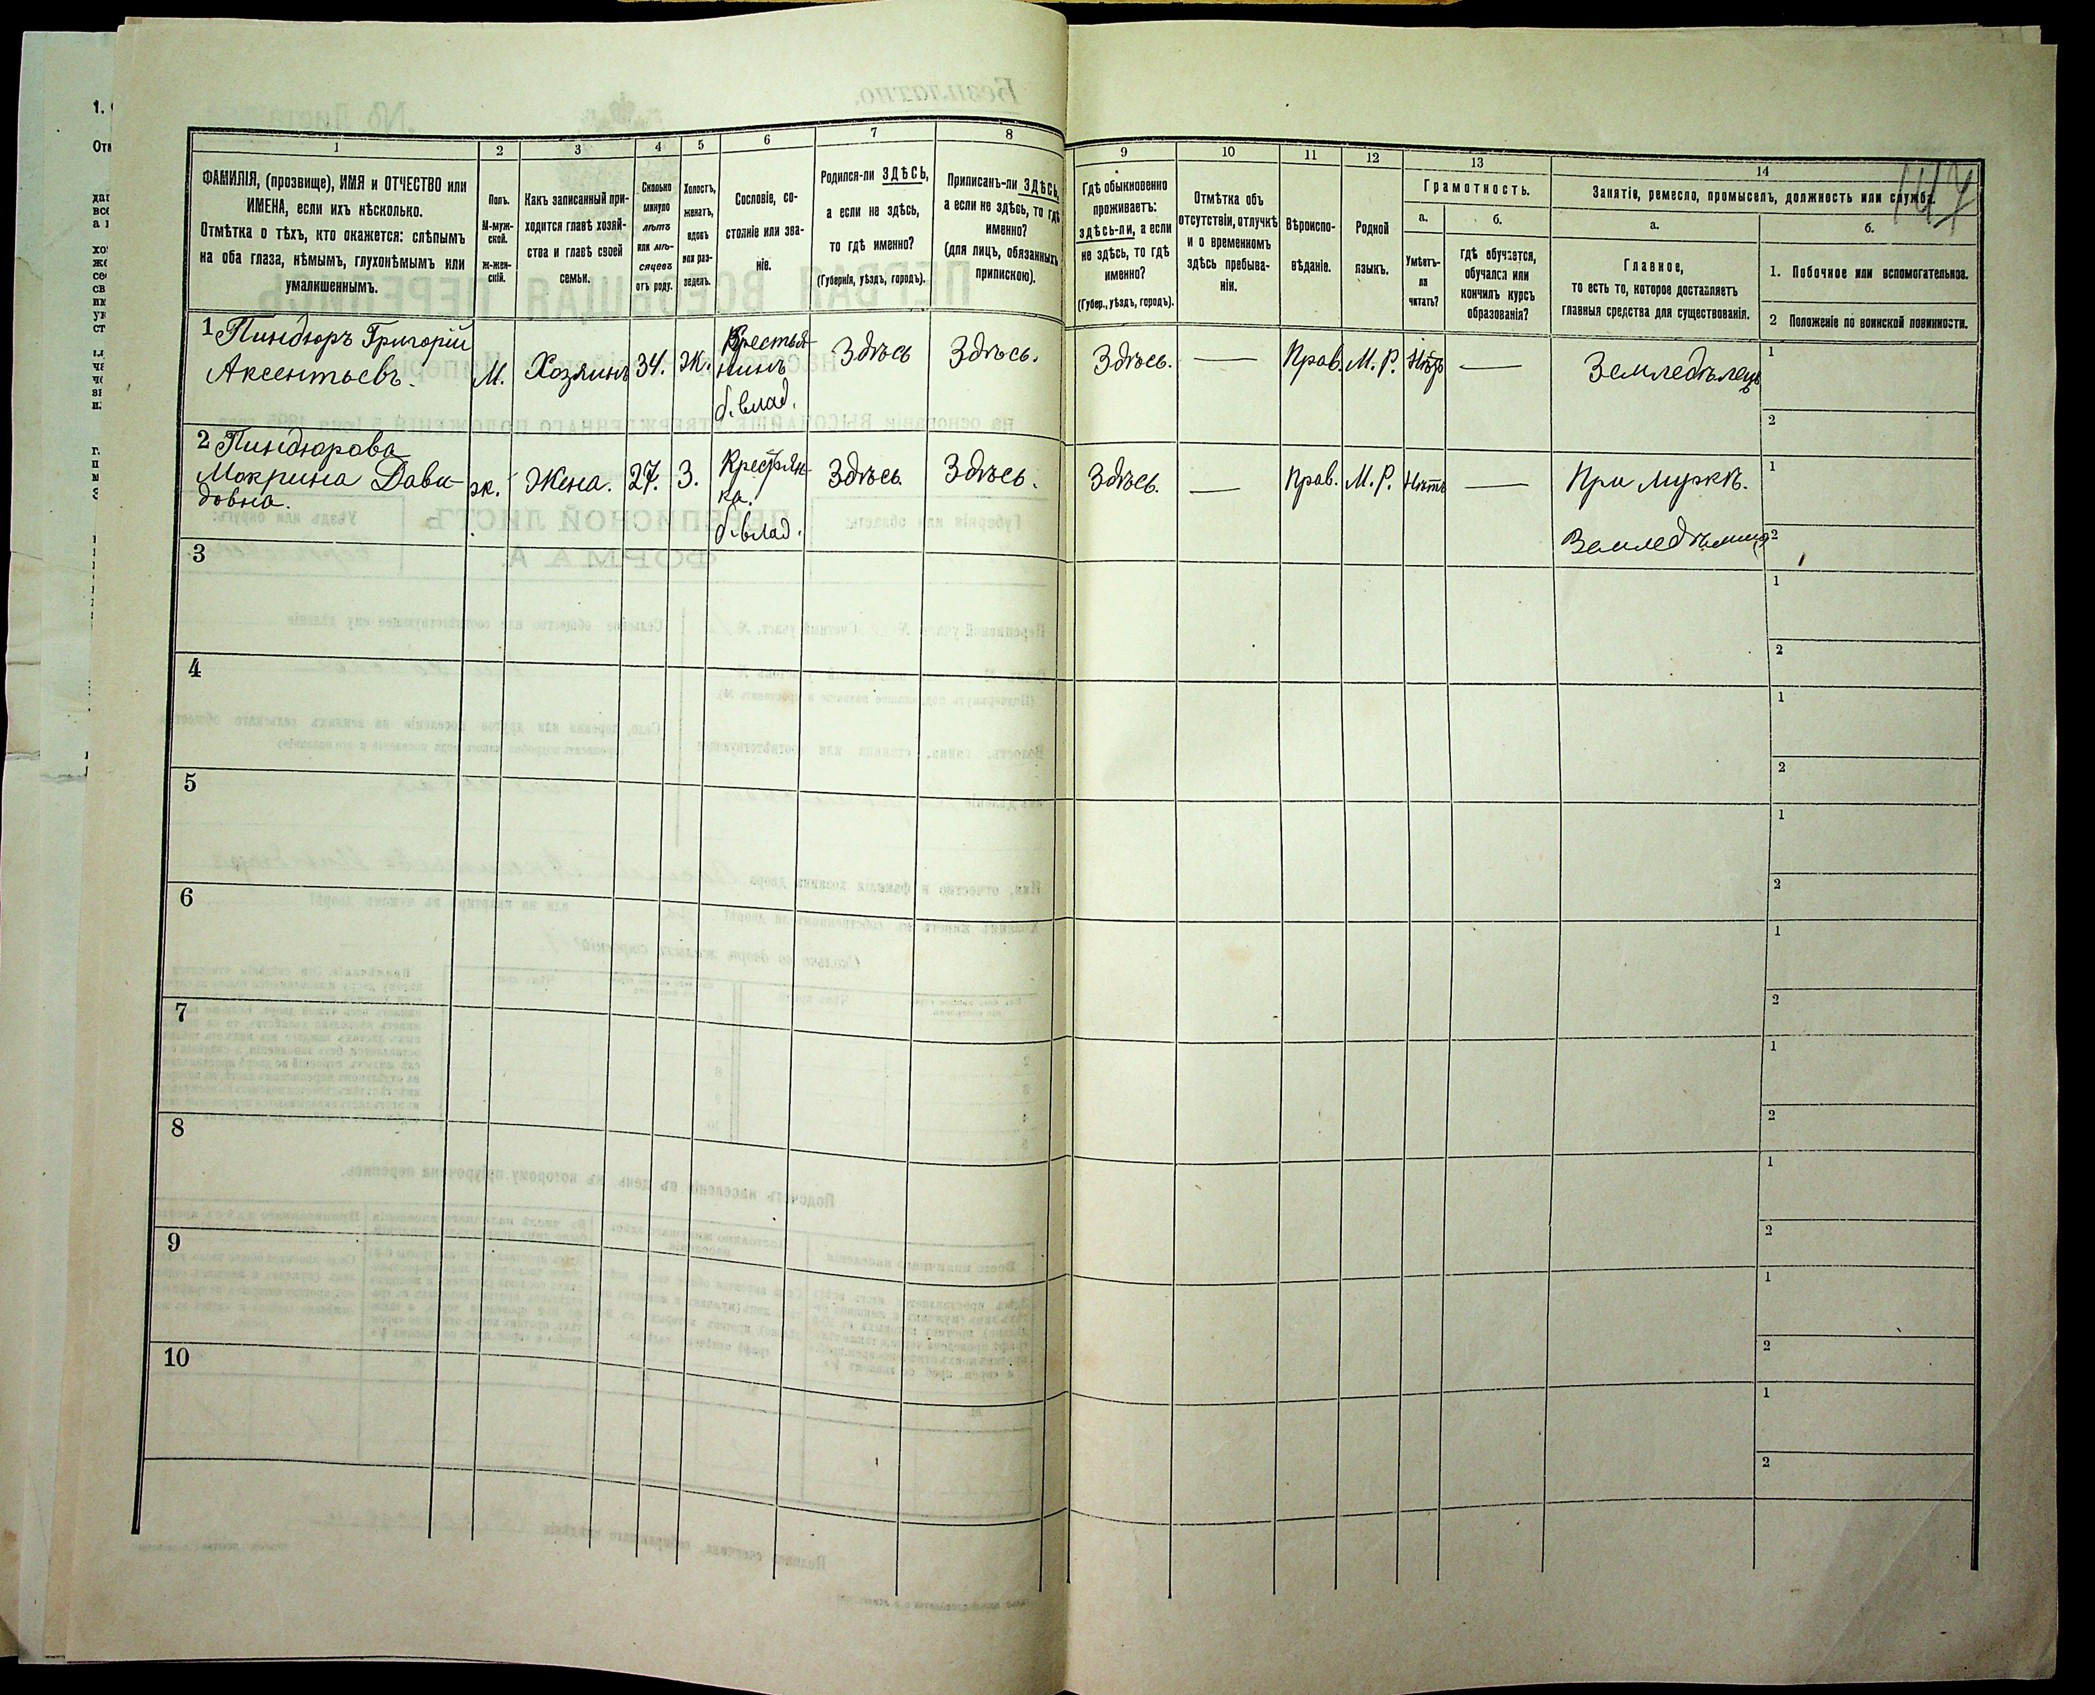 147
1 2 3 4 5 6 7 8 9 10 11 12 13 14
ФАМИЛІЯ, (прозвище), ИМЯ и ОТЧЕСТВО или
ИМЕНА, если ихъ нѣсколько.
Отмѣтка о тѣхъ, кто окажется: слѣпымъ
на оба глаза, нѣмымъ, глухонѣмымъ или
умалишеннымъ.
Полъ.
М-муж-
ской.
Ж-жен-
скій.
Какъ записанный при-
ходится главѣ хозяй-
ства и главѣ своей
семьи.
Сколько
минуло
лѣтъ
или мѣ-
сяцевъ
отъ роду.
Холостъ,
женатъ,
вдовъ
или раз-
веденъ.
Сословіе, со-
стояніе или зва-
ніе.
Родился-ли ЗДѢСЬ,
а если не здѣсь,
то гдѣ именно?
(Губернія, уѣздъ, городъ).
Приписанъ-ли ЗДѢСЬ,
а если не здѣсь, то гдѣ
именно?
(для лицъ, обязанныхъ
припискою).
Гдѣ обыкновенно
проживаетъ:
здѣсь-ли, а если
не здѣсь, то гдѣ
именно?
(Губер., уѣздъ, городъ).
Отмѣтка объ
отсутствіи, отлучкѣ
и о временномъ
здѣсь пребыва-
ніи.
Вѣроиспо-
вѣданіе.
Родной
языкъ.
Грамотность.
а.
Умѣетъ-
ли
читать?
б.
гдѣ обучается,
обучался или
кончилъ курсъ
образованія?
Занятіе, ремесло, промыселъ, должность или служба.
а.
Главное,
то есть то, которое доставляетъ
главныя средства для существованія.
б.
1. Побочное или вспомогательное.
2 Положеніе по воинской повинности.
1 Пиндюръ Григорій
Аксентьевъ.
М.
Хозяинъ
34.
Ж.
Крестья-
нинъ
б. влад.
Здѣсь
Здѣсь.
Здѣсь.
—
Прав.
М. Р.
Нѣтъ
—
Земледѣлецъ
1
2
2 Пиндюрова
Мокрина Дави-
довна.
ж.
Жена.
27.
З.
Крестьян-
ка.
б. влад.
Здѣсь
Здѣсь.
Здѣсь.
—
Прав.
М. Р.
Нѣтъ
—
При мужѣ.
1
2
3
1
2
4
1
2
5
1
2
6
1
2
7
1
2
8
1
2
9
1
2
10
1
2